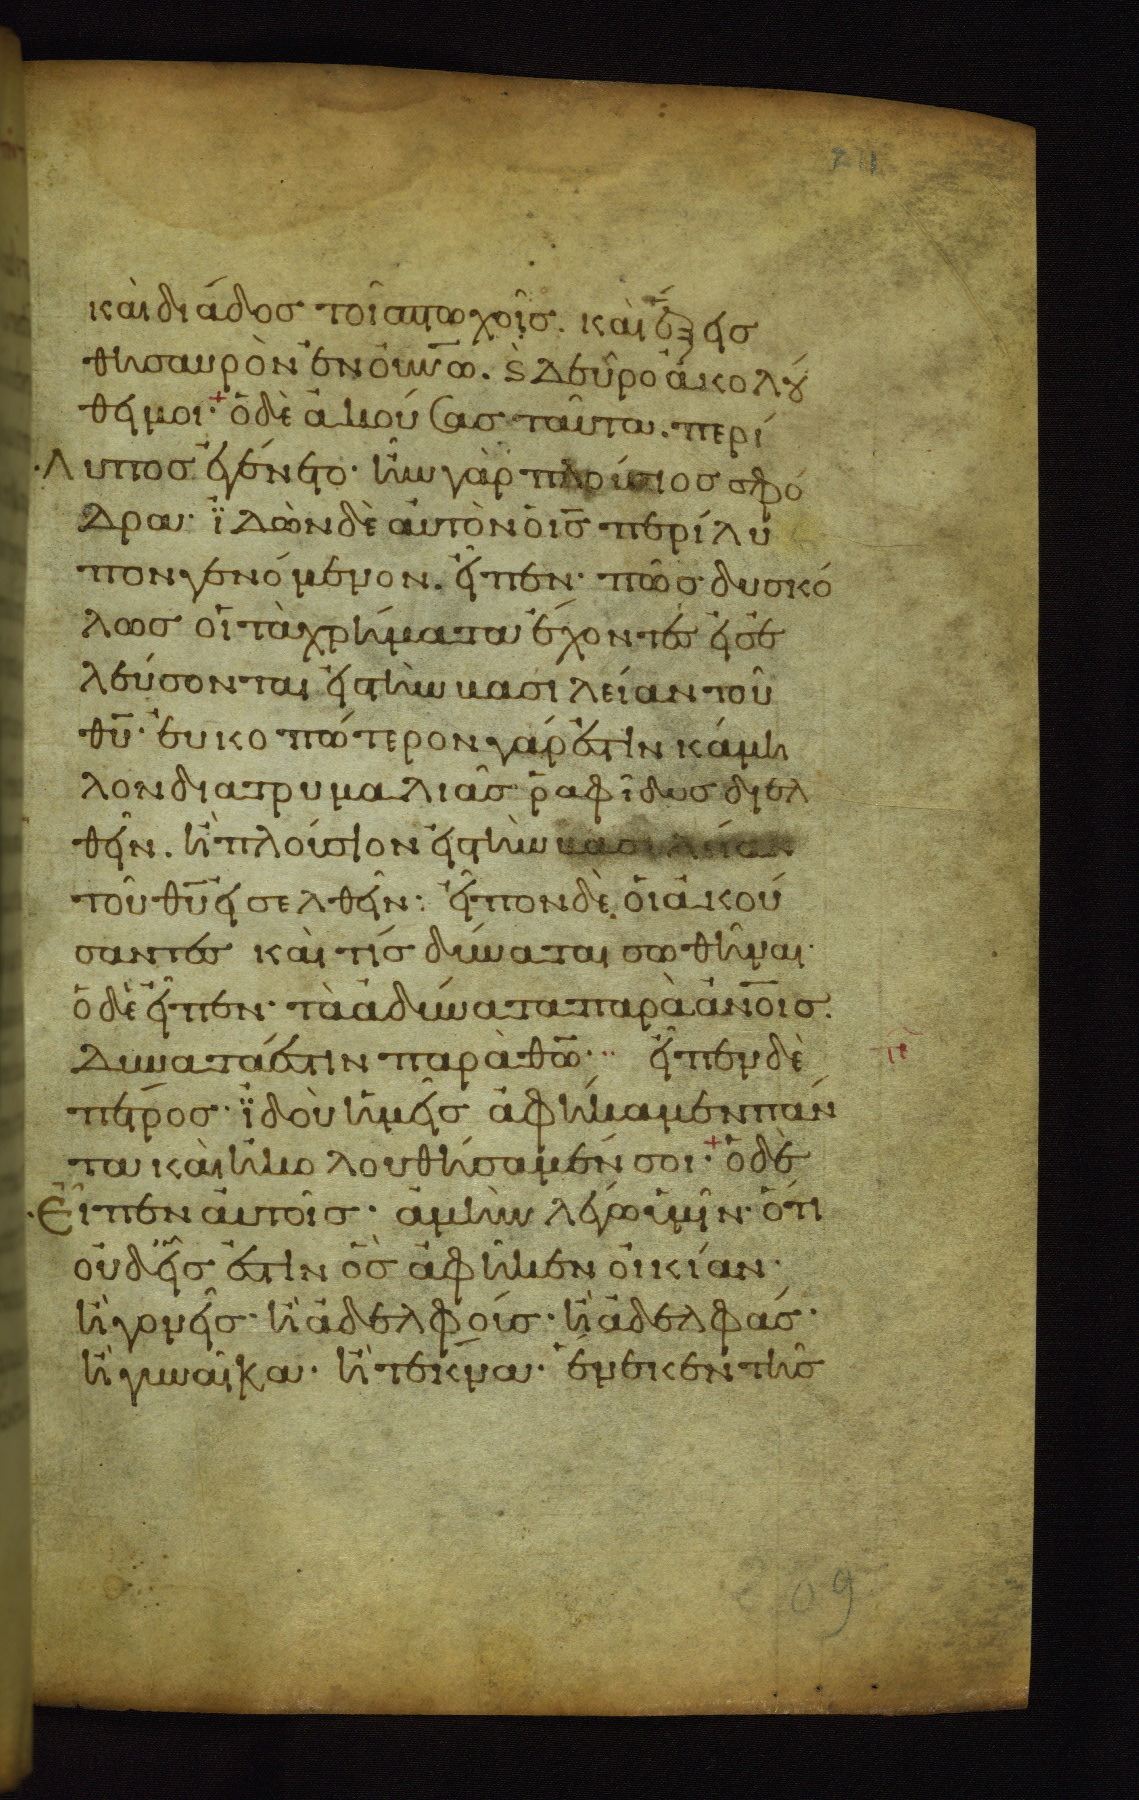 211
καὶ διάδος τοῖς πτωχοῖς. καὶ ἕξεις
θησαυρὸν ἐν οὐνω. ϛ δεῦρο ἀκολού
θει μοι· + ὁ δὲ ἀκούσας ταῦτα. περί
·λυπος ἐγένετο· ἦν γὰρ πλούσιος σφό
δρα· ἰδὼν δὲ αὐτὸν ὁ ις περίλυ
πον γενόμενον. εἶπεν· πῶς δυσκό
λως οἱ τὰ χρήματα ἔχοντες εἰσε
λεύσονται εἰς τὴν βασιλείαν τοῦ
θυ· εὐκοπώτερον γάρ ἐστιν κάμη
λον δια τρυμαλιᾶς ῥαφῖδος διελ
θεῖν. ἢ πλούσιον εἰς τὴν βασιλείαν
τοῦ θυ εἰσελθεῖν: εἶπον δὲ οἱ ἀκού
σαντες καὶ τίς δύναται σωθῆναι·
ὁ δὲ εἶπεν· τὰ ἀδύνατα παρὰ ἀνοις.
δυνατά ἐστιν παρὰ θω·· εἶπεν δὲ
πέτρος· ἰδοὺ ἡμεῖς ἀφήκαμεν πάν
τα καὶ ἠκολουθήσαμέν σοι· + ὁ δὲ
·εἶπεν αὐτοῖς· ἀμὴν λέγω ὑμῖν· ὅτι
οὐδείς ἐστιν ὃς ἀφῆκεν οἰκίαν·
ἢ γονεῖς· ἢ ἀδελφούς· ἢ ἀδελφάς·
ἢ γυναῖκα· ἢ τέκνα· ἕνεκεν τῆς
209